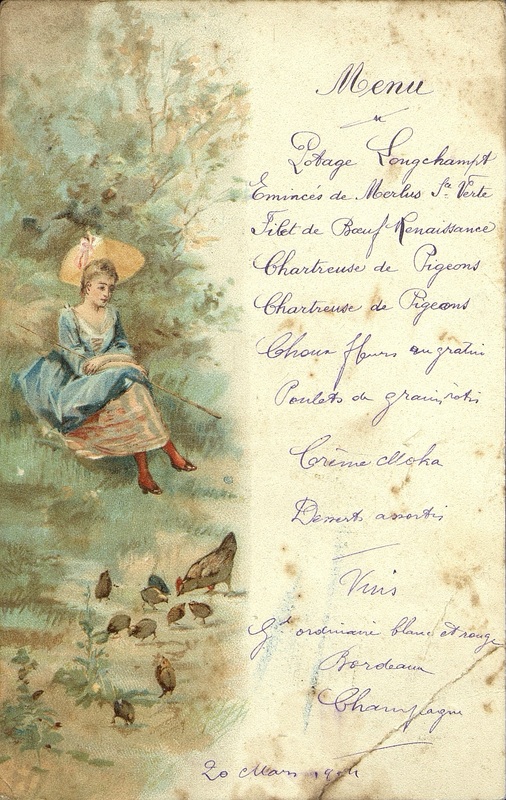 Menu
Potage Longchampt
Emincés de Merlus Sce Verte
Filet de Bœuf Renaissance
Chartreuse de Pigeons
Chartreuse de Pigeons
Choux fleurs au gratin
Poulets de grains rôtis
Crème Moka
Desserts assortis
Vins
Gd ordinaire blanc et rouge
Bordeaux
Champagne
20 Mars